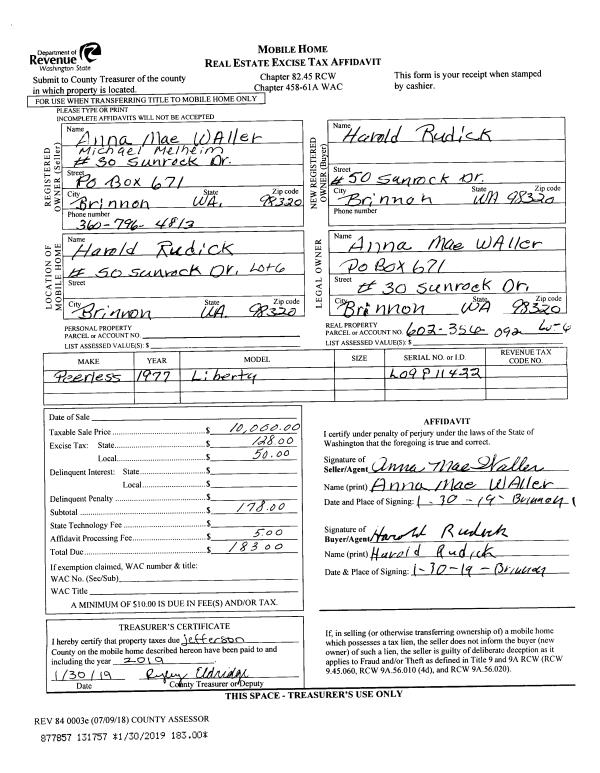 Department of
Revenue
Washington State
MOBILE HOME
REAL ESTATE EXCISE TAX AFFIDAVIT
Submit to County Treasurer of the county
in which property is located.
Chapter 82.45 RCW
Chapter 458-61A WAC
This form is your receipt when stamped
by cashier.
FOR USE WHEN TRANSFERRING TITLE TO MOBILE HOME ONLY
PLEASE TYPE OR PRINT
INCOMPLETE AFFIDAVITS WILL NOT BE ACCEPTED
REGISTERED
OWNER (Seller)
Name
Anna Mae WAller
Michael Melheim
# 30 Sunrock Dr.
Street
PO Box 671
City State Zip code
Brinnon WA. 98320
Phone number
360-796-4813
NEW REGISTERED
OWNER (Buyer)
Name
Harold Rudick
Street
# 50 Sunrock Dr.
City State Zip code
Brinnon WA 98320
Phone number
LOCATION OF
MOBILE HOME
Name
Harold Rudick
# 50 Sunrock Dr. Lot 6
Street
City State Zip code
Brinnon WA. 98320
LEGAL OWNER
Name
Anna Mae WAller
PO Box 671
Street
# 30 sunrock Dr.
City State Zip code
Brinnon WA 98320
PERSONAL PROPERTY
PARCEL or ACCOUNT NO.
LIST ASSESSED VALUE(S): $
REAL PROPERTY
PARCEL or ACCOUNT NO. 602-356-092
LIST ASSESSED VALUE(S): $
MAKE YEAR MODEL SIZE SERIAL NO. or I.D. REVENUE TAX CODE NO.
Peerless 1977 Liberty L09P11432
Date of Sale
Taxable Sale Price $ 10,000.00
Excise Tax: State $ 128.00
Local $ 50.00
Delinquent Interest: State $
Local $
Delinquent Penalty $
Subtotal $ 178.00
State Technology Fee $
Affidavit Processing Fee $ 5.00
Total Due $ 183.00
If exemption claimed, WAC number & title:
WAC No. (Sec/Sub)
WAC Title
A MINIMUM OF $10.00 IS DUE IN FEE(S) AND/OR TAX.
AFFIDAVIT
I certify under penalty of perjury under the laws of the State of
Washington that the foregoing is true and correct.
Signature of
Seller/Agent Anna Mae Waller
Name (print) Anna Mae WAller
Date and Place of Signing: 1-30-19- Brinnon
Signature of
Buyer/Agent Harold Rudick
Name (print) Harold Rudick
Date & Place of Signing: 1-30-19 - Brinnon
TREASURER'S CERTIFICATE
I hereby certify that property taxes due Jefferson
County on the mobile home described hereon have been paid to and
including the year 2019
1/30/19 Eldridge
Date County Treasurer or Deputy
If, in selling (or otherwise transferring ownership of) a mobile home
which possesses a tax lien, the seller does not inform the buyer (new
owner) of such a lien, the seller is guilty of deliberate deception as it
applies to Fraud and/or Theft as defined in Title 9 and 9A RCW (RCW
9.45.060, RCW 9A.56.010 (4d), and RCW 9A.56.020).
THIS SPACE - TREASURER'S USE ONLY
REV 84 0003e (07/09/18) COUNTY ASSESSOR
877857 131757 *1/30/2019 183.00*